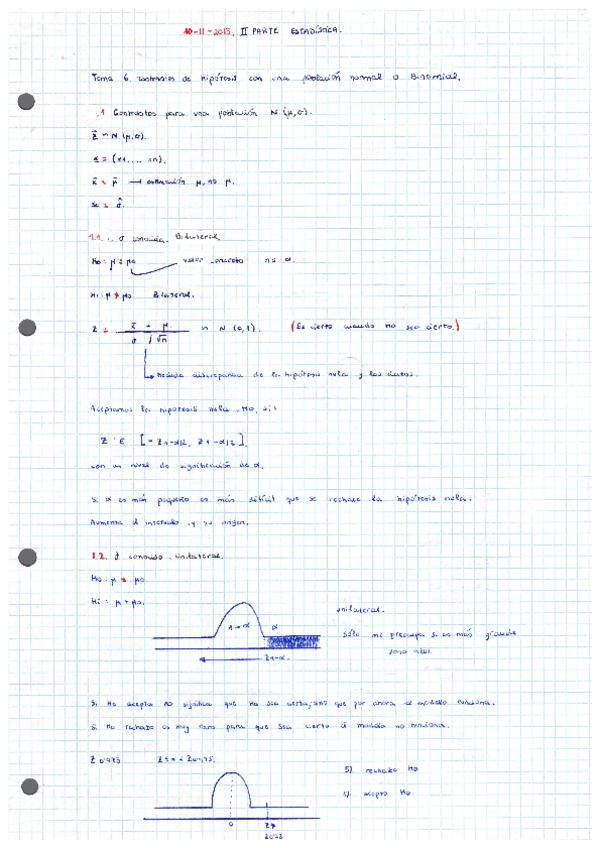 10-11-2013. II PARTE ESTADÍSTICA.
Tema 6. Contrastes de hipótesis con una población normal o Binomial.
.1 Contrastes para una población N (μ,σ).
(x1.... xn).
estimación
1.1. σ conocida. Bilateral
Ho: μ = μo valor concreto
H1: μ ≠ μo Bilateral.
Z = x̄ - μ / σ / √n ~ N (0,1). (Es cierto cuando Ho sea cierto.)
Medida discrepancia de la hipótesis nula y los datos.
Aceptamos la hipótesis nula, Ho, si:
Z ∈ [- Z1-α/2, Z1-α/2]
con un nivel de significación de α.
Si α es más pequeño es más difícil que se rechace la hipótesis nula.
Aumenta el intervalo y su
1.2. σ conocida. Unilateral.
Ho: μ = μo
H1: μ > μo.
unilateral.
1-α α
Sólo me preocupa si es más grande
Z1-α.
Si Ho acepta no significa que Ho sea cierta, sino que por ahora el modelo funciona.
Si Ho rechazo es muy raro para que sea cierto el modelo no funciona.
Z 0'975
5) rechazo Ho
acepto Ho
0